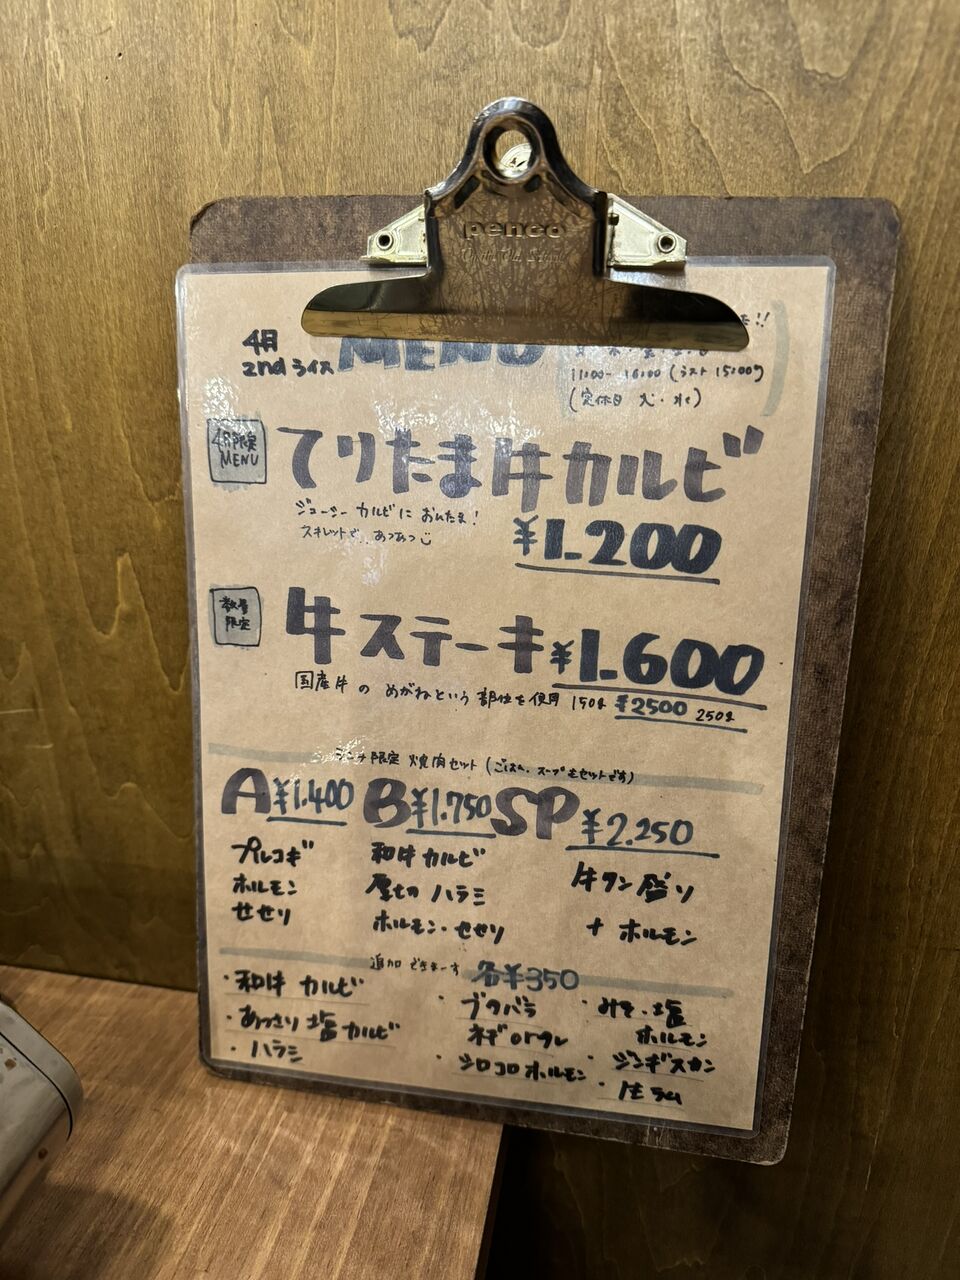 penco
4月
2nd ライス
MENU
た!!
11:00- 16:00 (ラスト 15:00)
(定休日 火・水)
4月限定
MENU
てりたま牛カルビ
ジューシー カルビに おんたま!
スキレットで あつあつ
¥1.200
数量
限定
牛ステーキ ¥1.600
国産牛の めがねという 部位を使用 150g ¥2500 250g
ランチ限定 焼肉セット (ごはん、スープもセットです)
A ¥1.400 B ¥1.750 SP ¥2.250
プルコギ
ホルモン
せせり
和牛カルビ
厚切りハラミ
ホルモン・せせり
牛タン盛り
+ ホルモン
追加できまーす 各¥350
・和牛 カルビ
・あっさり塩カルビ
・ハラミ
・ブタバラ
ネギorタレ
・シロコロホルモン
・みそ・塩
ホルモン
・ジンギスカン
・生ラム